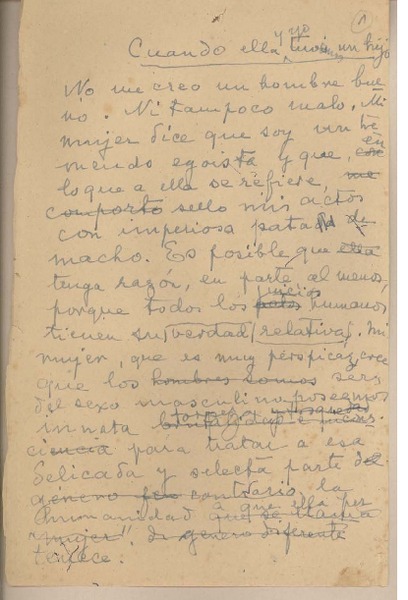 1
Cuando ella y yo tuvimos un hijo
No me creo un hombre bue
no. Ni tampoco malo. Mi
mujer dice que soy un tre
mendo egoista y que, en
lo que a ella se refiere, me
comporto sello mis actos
con imperiosa pata de
macho. Es posible que ella
tenga razón, en parte al menos,
porque todos los juicios humanos
tienen su verdad relativa. Mi
mujer, que es muy perspicaz, cree
que los hombres somos seres
del sexo masculino poseemos
innata torpeza
ciencia para tratar a esa
delicada y selecta parte de
genero contrario la
humanidad a que ella per
que se llama
"mujer". de genero diferente
tenece.